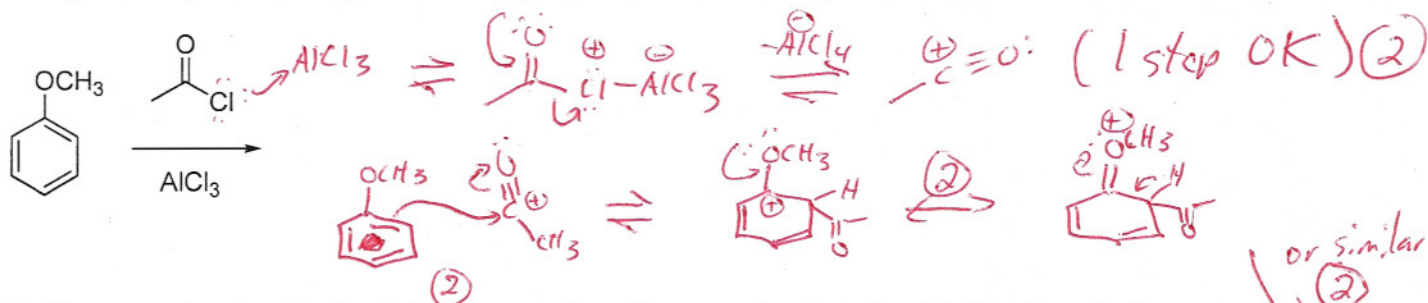 O
OCH3
Cl
AlCl3
AlCl3
O
⊕ ⊖
Cl—AlCl3
⊖
-AlCl4
⊕
C≡O: (1 step OK) ②
OCH3
O
C ⊕
CH3
②
OCH3
H
⊕
O
②
⊕
OCH3
H
O
or similar
②